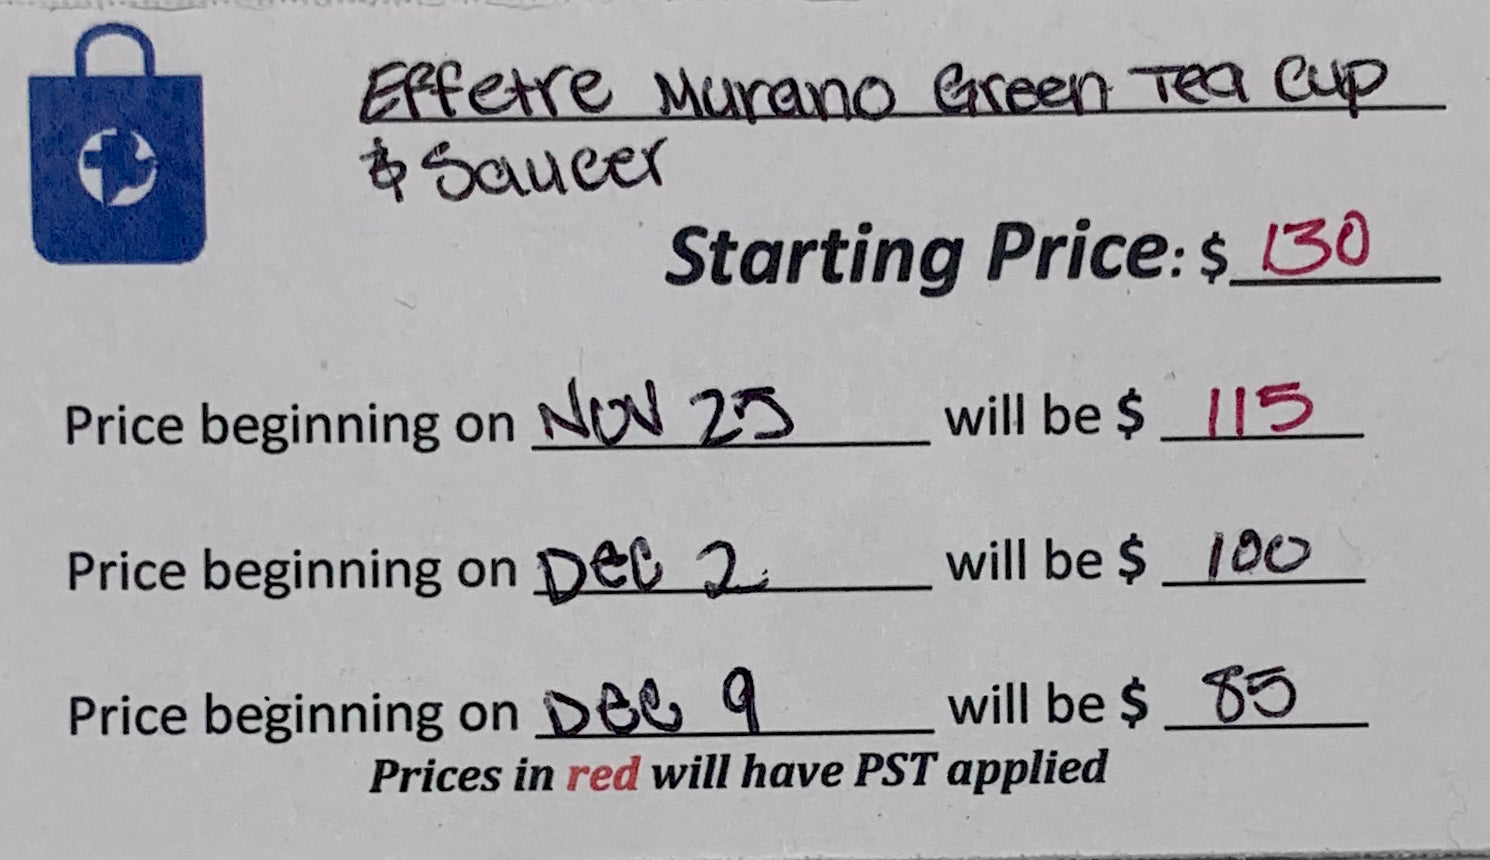 Effetre Murano Green Tea Cup
& Saucer
Starting Price: $ 130
Price beginning on Nov 25 will be $ 115
Price beginning on Dec 2 will be $ 100
Price beginning on Dec 9 will be $ 85
Prices in red will have PST applied